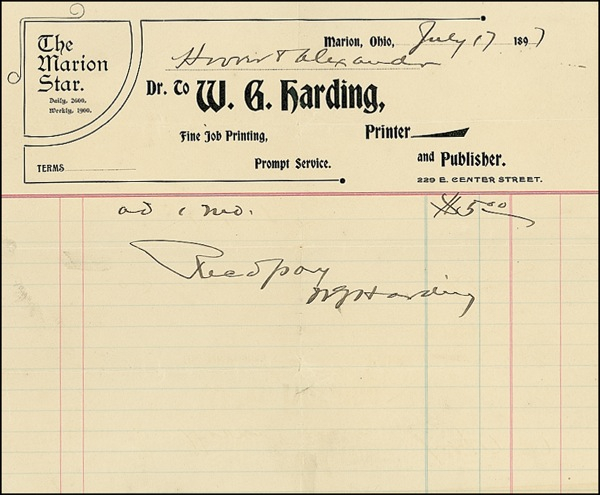 The
Marion
Star.
Daily, 2600.
Weekly, 1900.
TERMS
Marion, Ohio, July 17 1897
& Alexander
Dr. To W. G. Harding,
Fine Job Printing,
Prompt Service.
Printer
and Publisher.
229 E. CENTER STREET.
ad 1 mo. $5.00
Rec'd pay
WG Harding